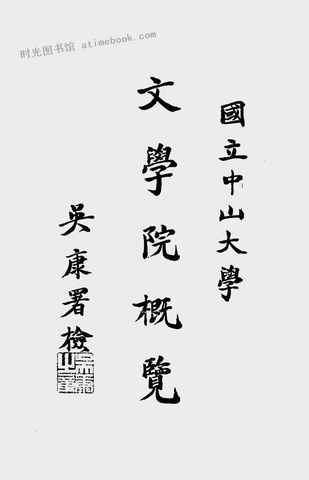 时光图书馆 atimebook.com
國立中山大學
文學院概覽
吳康署檢
吳康之章